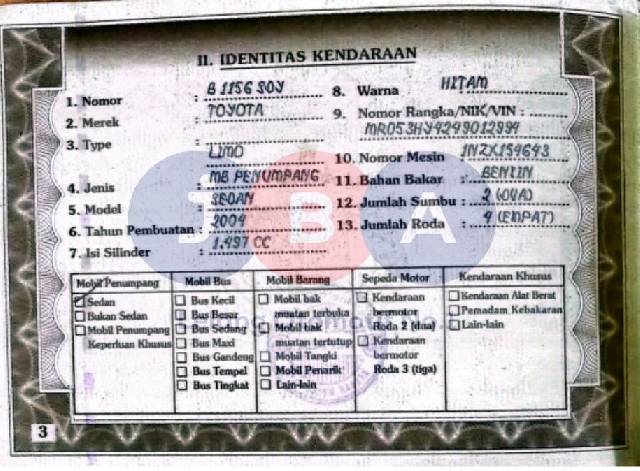 II. IDENTITAS KENDARAAN
1. Nomor : B 1156 SOY
2. Merek : TOYOTA
3. Type : LIMO
4. Jenis : MB PENUMPANG
5. Model : SEDAN
6. Tahun Pembuatan : 2004
7. Isi Silinder : 1.497 CC
8. Warna : HITAM
9. Nomor Rangka/NIK/VIN :
MR053HY4249012994
10. Nomor Mesin : 1NZX154643
11. Bahan Bakar : BENSIN
12. Jumlah Sumbu : 2 (DUA)
13. Jumlah Roda : 4 (EMPAT)
JBA
Mobil Penumpang
Sedan
Bukan Sedan
Mobil Penumpang
Keperluan Khusus
Mobil Bus
Bus Kecil
Bus Besar
Bus Sedang
Bus Maxi
Bus Gandeng
Bus Tempel
Bus Tingkat
Mobil Barang
Mobil bak
muatan terbuka
Mobil bak
muatan tertutup
Mobil Tangki
Mobil Penarik
Lain-lain
Sepeda Motor
Kendaraan
bermotor
Roda 2 (dua)
Kendaraan
bermotor
Roda 3 (tiga)
Kendaraan Khusus
Kendaraan Alat Berat
Pemadam Kebakaran
Lain-lain
3